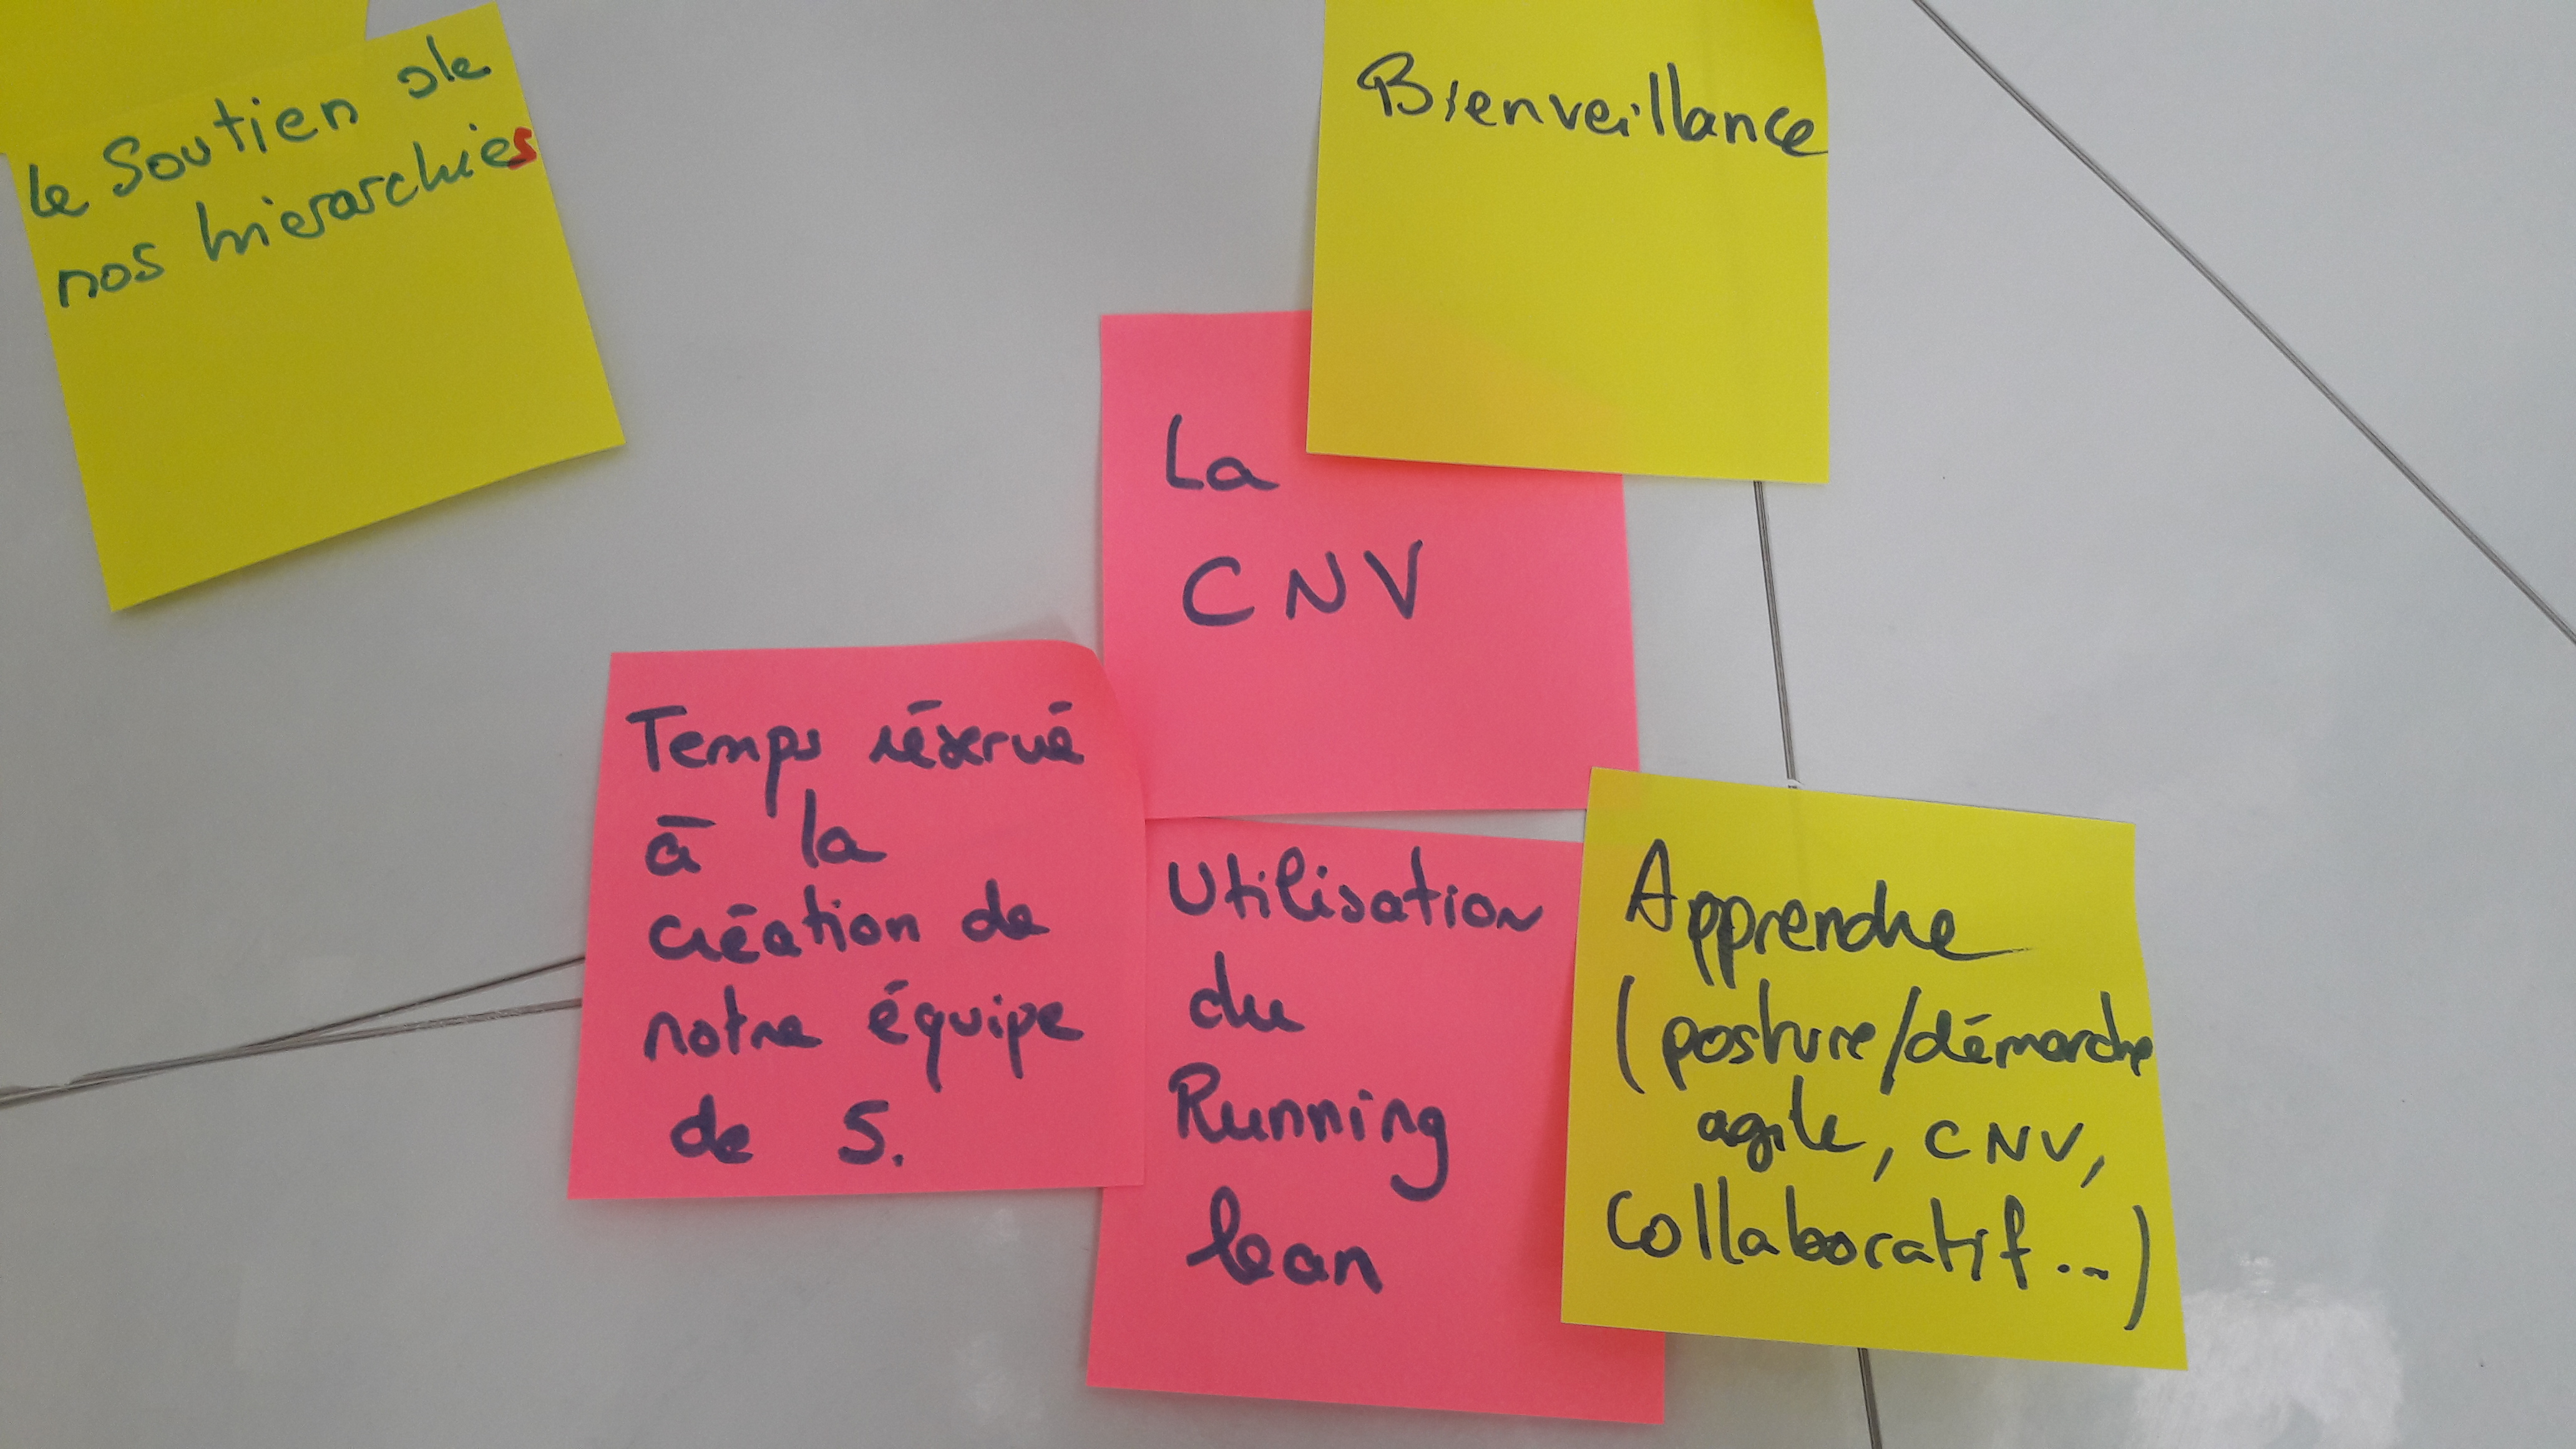 le Soutien de
nos hierarchies
Bienveillance
La
CNV
Temps réservé
à la
création de
notre équipe
de 5.
Utilisation
du
Running
lean
Apprendre
(posture/démarche
agile, CNV,
collaboratif...)